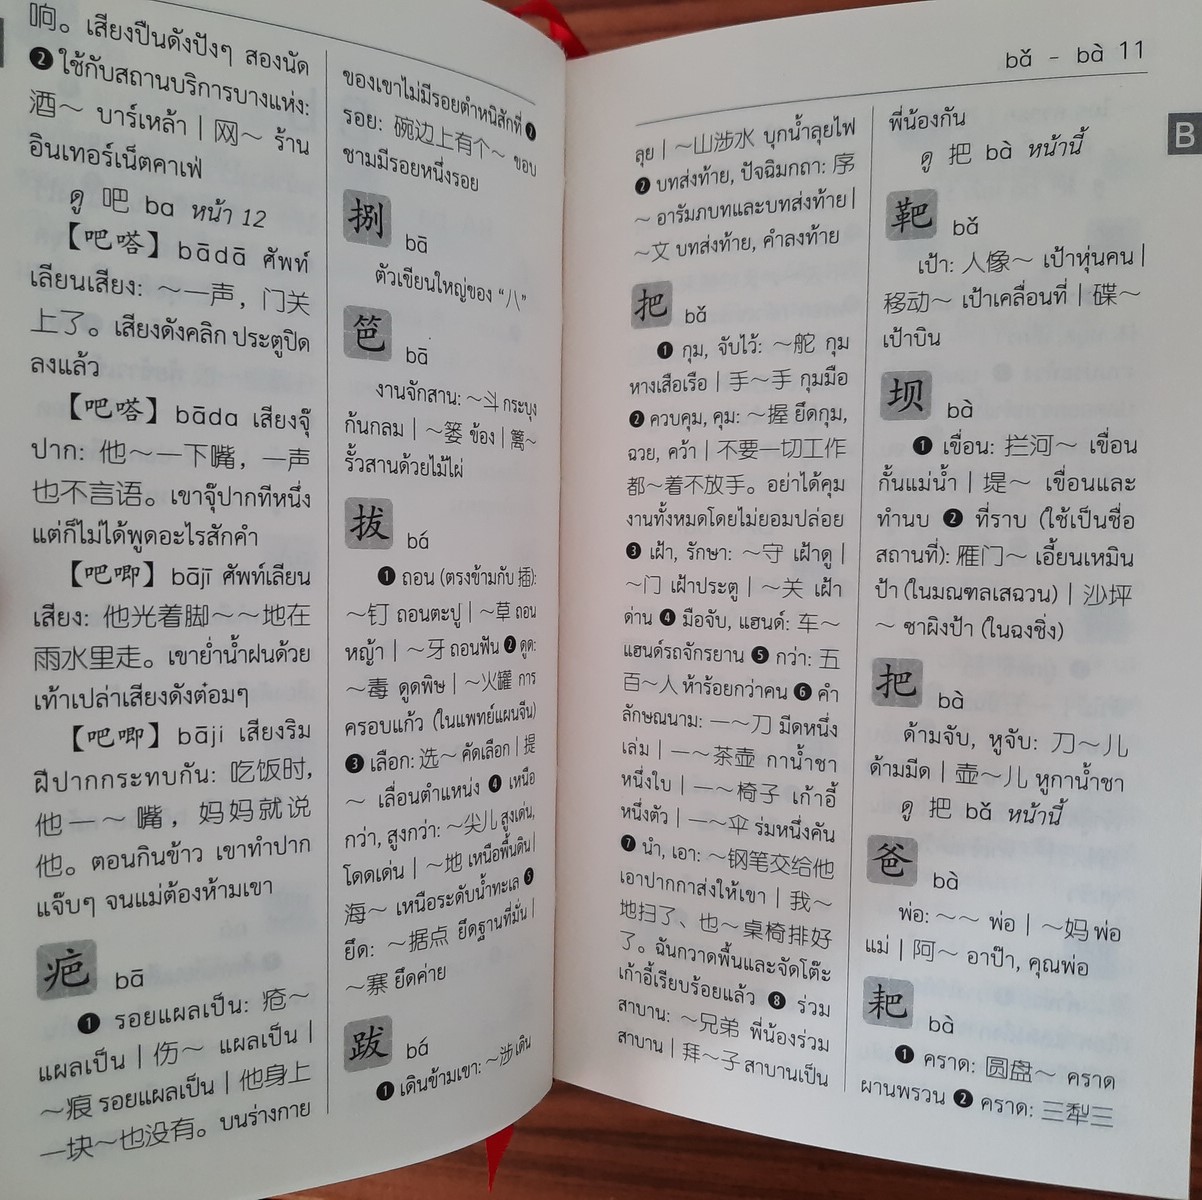 响。เสียงปืนดังปังๆ สองนัด
❷ ใช้กับสถานบริการบางแห่ง:
酒～ บาร์เหล้า | 网～ ร้าน
อินเทอร์เน็ตคาเฟ่
ดู 吧 ba หน้า 12
【吧嗒】bādā ศัพท์
เลียนเสียง: ～一声, 门关
上了。เสียงดังคลิก ประตูปิด
ลงแล้ว
【吧嗒】bāda เสียงจุ๊
ปาก: 他～一下嘴, 一声
也不言语。เขาจุ๊ปากทีหนึ่ง
แต่ก็ไม่ได้พูดอะไรสักคำ
【吧唧】bājī ศัพท์เลียน
เสียง: 他光着脚～～地在
雨水里走。เขาย่ำน้ำฝนด้วย
เท้าเปล่าเสียงดังต๋อมๆ
【吧唧】bāji เสียงริม
ฝีปากกระทบกัน: 吃饭时,
他一～嘴, 妈妈就说
他。ตอนกินข้าว เขาทำปาก
แจ๊บๆ จนแม่ต้องห้ามเขา
疤 bā
❶ รอยแผลเป็น: 疮～
แผลเป็น | 伤～ แผลเป็น |
～痕 รอยแผลเป็น | 他身上
一块～也没有。บนร่างกาย
ของเขาไม่มีรอยตำหนิสักที่ ❷
รอย: 碗边上有个～ ขอบ
ชามมีรอยหนึ่งรอย
捌 bā
ตัวเขียนใหญ่ของ “八”
笆 bā
งานจักสาน: ～斗 กระบุง
ก้นกลม | ～篓 ข้อง | 篱～
รั้วสานด้วยไม้ไผ่
拔 bá
❶ ถอน (ตรงข้ามกับ 插):
～钉 ถอนตะปู | ～草 ถอน
หญ้า | ～牙 ถอนฟัน ❷ ดูด:
～毒 ดูดพิษ | ～火罐 การ
ครอบแก้ว (ในแพทย์แผนจีน)
❸ เลือก: 选～ คัดเลือก | 提
～ เลื่อนตำแหน่ง ❹ เหนือ
กว่า, สูงกว่า: ～尖儿 สูงเด่น,
โดดเด่น | ～地 เหนือพื้นดิน |
海～ เหนือระดับน้ำทะเล ❺
ยึด: ～据点 ยึดฐานที่มั่น |
～寨 ยึดค่าย
跋 bá
❶ เดินข้ามเขา: ～涉 เดิน
bǎ – bà 11
B
ลุย | ～山涉水 บุกน้ำลุยไฟ
❷ บทส่งท้าย, ปัจฉิมกถา: 序
～ อารัมภบทและบทส่งท้าย |
～文 บทส่งท้าย, คำลงท้าย
把 bǎ
❶ กุม, จับไว้: ～舵 กุม
หางเสือเรือ | 手～手 กุมมือ
❷ ควบคุม, คุม: ～握 ยึดกุม,
ฉวย, คว้า | 不要一切工作
都～着不放手。อย่าได้คุม
งานทั้งหมดโดยไม่ยอมปล่อย
❸ เฝ้า, รักษา: ～守 เฝ้าดู |
～门 เฝ้าประตู | ～关 เฝ้า
ด่าน ❹ มือจับ, แฮนด์: 车～
แฮนด์รถจักรยาน ❺ กว่า: 五
百～人 ห้าร้อยกว่าคน ❻ คำ
ลักษณนาม: 一～刀 มีดหนึ่ง
เล่ม | 一～茶壶 กาน้ำชา
หนึ่งใบ | 一～椅子 เก้าอี้
หนึ่งตัว | 一～伞 ร่มหนึ่งคัน
❼ นำ, เอา: ～钢笔交给他
เอาปากกาส่งให้เขา | 我～
地扫了、也～桌椅排好
了。ฉันกวาดพื้นและจัดโต๊ะ
เก้าอี้เรียบร้อยแล้ว ❽ ร่วม
สาบาน: ～兄弟 พี่น้องร่วม
สาบาน | 拜～子 สาบานเป็น
พี่น้องกัน
ดู 把 bà หน้านี้
靶 bǎ
เป้า: 人像～ เป้าหุ่นคน |
移动～ เป้าเคลื่อนที่ | 碟～
เป้าบิน
坝 bà
❶ เขื่อน: 拦河～ เขื่อน
กั้นแม่น้ำ | 堤～ เขื่อนและ
ทำนบ ❷ ที่ราบ (ใช้เป็นชื่อ
สถานที่): 雁门～ เอี้ยนเหมิน
ป้า (ในมณฑลเสฉวน) | 沙坪
～ ซาผิงป้า (ในฉงชิ่ง)
把 bà
ด้ามจับ, หูจับ: 刀～儿
ด้ามมีด | 壶～儿 หูกาน้ำชา
ดู 把 bǎ หน้านี้
爸 bà
พ่อ: ～～ พ่อ | ～妈 พ่อ
แม่ | 阿～ อาป๊า, คุณพ่อ
耙 bà
❶ คราด: 圆盘～ คราด
ผานพรวน ❷ คราด: 三犁三